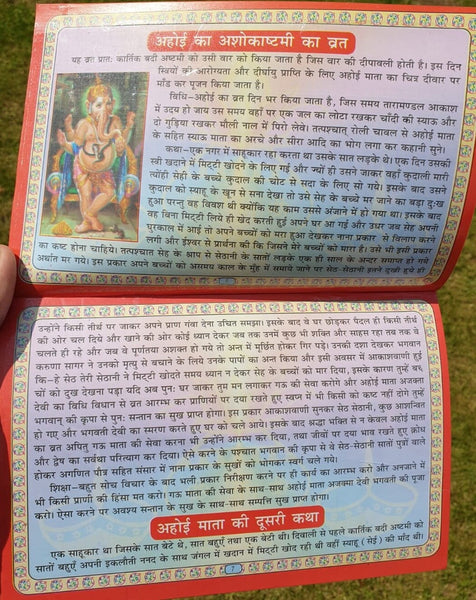 अहोई का अशोकाष्टमी का व्रत
यह व्रत प्रातः कार्तिक बदी अष्टमी को उसी वार को किया जाता है जिस वार की दीपावली होती है। इस दिन
स्त्रियों को आरोग्यता और दीर्घायु प्राप्ति के लिए अहोई माता का चित्र दीवार पर
माँड कर पूजन किया जाता है।
विधि-अहोई का व्रत दिन भर किया जाता है, जिस समय तारामण्डल आकाश
में उदय हो जाय उस समय वहाँ पर एक जल का लोटा रखकर चाँदी की स्याऊ और
दो गुड़िया रखकर मौली नाल में पिरो लेवे। तत्पश्चात् रोली चावल से अहोई माता
के सहित स्याऊ माता का अरचे और सीरा आदि का भोग लगा कर कहानी सुने।
कथा-एक नगर में साहूकार रहा करता था उसके सात लड़के थे। एक दिन उसकी
स्त्री खदाने में मिट्टी खोदने के लिए गई और ज्यों ही उसने जाकर वहाँ कुदाली मारी
त्योंही सेही के बच्चे कुदाल की चोट से सदा के लिए सो गये। इसके बाद उसने
कुदाल को स्याहू के खून से सना देखा तो उसे सेह के बच्चे मर जाने का बड़ा दुःख
हुआ परन्तु वह विवश थी क्योंकि यह काम उससे अंजाने में हो गया था। इसके बाद
वह बिना मिट्टी लिये ही खेद करती हुई अपने घर आ गई और उधर जब सेह अपनी
घुरकाल में आई तो अपने बच्चों को मरा हुआ देखकर नाना प्रकार से विलाप करने
लगी और ईश्वर से प्रार्थना की कि जिसने मेरे बच्चों को मारा है। उसे भी इसी प्रकार
का कष्ट होना चाहिये। तत्पश्चात सेह के श्राप से सेठानी के सातों लड़के एक ही साल के अन्दर समाप्त हो गये
अर्थात मर गये। इस प्रकार अपने बच्चों को असमय काल के मुँह में समाये जाने पर सेठ-सेठानी इतने दुखी हुये ही
उन्होंने किसी तीर्थ पर जाकर अपने प्राण गंवा देना उचित समझा। इसके बाद वे घर छोड़कर पैदल ही किसी तीर्थ
की ओर चल दिये और खाने की ओर कोई ध्यान देकर जब तक उनमें कुछ भी शक्ति और साहस रहा तब तक वे
चलते ही रहे और जब वे पूर्णतया अशक्त हो गये तो अन्त में मूर्छित होकर गिर पड़े। उनकी दशा देखकर भगवान
करुणा सागर ने उनको मृत्यु से बचाने के लिये उनके पापों का अन्त किया और इसी अवसर में आकाशवाणी हुई
कि-हे सेठ तेरी सेठानी ने मिट्टी खोदते समय ध्यान न देकर सेह के बच्चों को मार दिया, इसके कारण तुम्हें बच्‍
चों को दुख देखना पड़ा यदि अब पुनः घर जाकर तुम मन लगाकर गऊ की सेवा करोगे और अहोई माता अजक्ता
देवी का बिधि विधान से व्रत आरम्भ कर प्राणियों पर दया रखते हुए स्वप्न में भी किसी को कष्ट नहीं दोगे तुम्हें
भगवान् की कृपा से पुनः सन्तान का सुख प्राप्त होगा। इस प्रकार आकाशवाणी सुनकर सेठ सेठानी, कुछ आशन्वित
हो गए और भगवती देवी का स्मरण करते हुए घर को चले आये। इसके बाद श्रद्धा भक्ति से न केवल अहोई माता
का व्रत अपितु गऊ माता की सेवा करना भी उन्होंने आरम्भ कर दिया, तथा जीवों पर दया भाव रखते हुए क्रोध
और द्वेष का सर्वथा परित्याग कर दिया। ऐसे करने के पश्चात भगवान की कृपा से वे सेठ-सेठानी सातों पुत्रों वाले
होकर अगणित पौत्र सहित संसार में नाना प्रकार के सुखों को भोगकर स्वर्ग चले गये।
शिक्षा-बहुत सोच विचार के बाद भली प्रकार निरीक्षण करने पर ही कार्य का आरम्भ करो और अनजाने में
भी किसी प्राणी की हिंसा मत करो। गऊ माता की सेवा के साथ-साथ अहोई माता अजक्मा देवी भगवती की पूजा
करो। ऐसा करने पर अवश्य सन्तान के सुख के साथ-साथ सम्पत्ति सुख प्राप्त होगा।
अहोई माता की दूसरी कथा
एक साहूकार था जिसके सात बेटे थे, सात बहुएँ तथा एक बेटी थी। दिवाली से पहले कार्तिक बदी अष्टमी को
सातों बहुएँ अपनी इकलौती ननद के साथ जंगल में खदान में मिट्टी खोद रही थी वहीं स्याहू (सेई) की माँद थी।
7